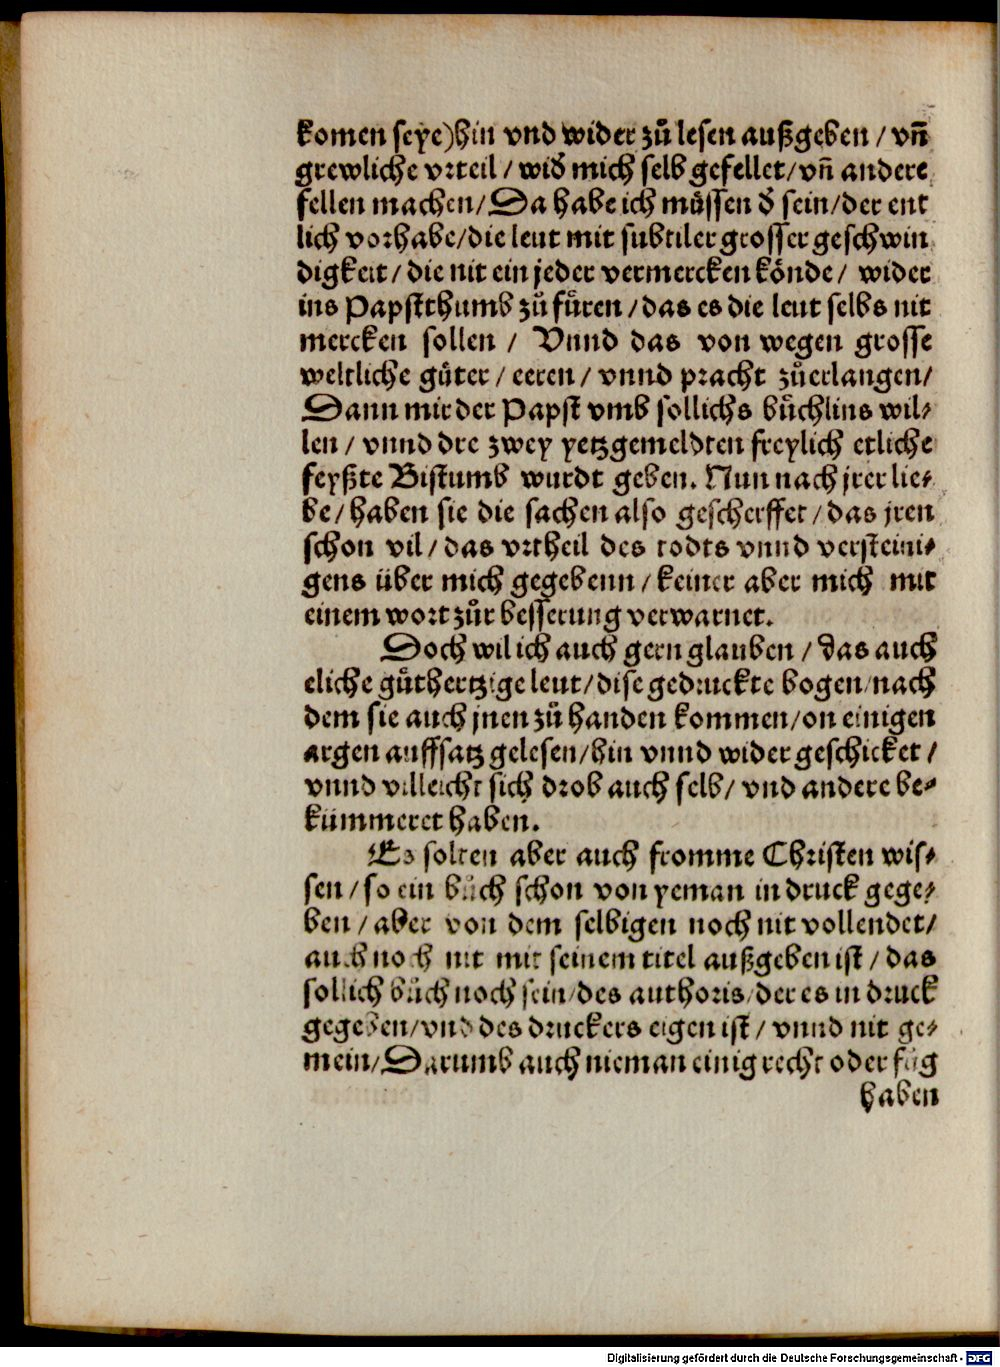 komen seye)hin vnd wider zů lesen außgeben / vñ
grewliche vrteil / wid̕ mich selb gefellet/vñ andere
fellen machen/Da habe ich müssen d̕ sein/der ent
lich vorhabe/die leut mit subtiler grosser geschwin
digkeit / die nit ein jeder vermercken könde / wider
ins Papstthumb zů fůren / das es die leut selbs nit
mercken sollen / Vnnd das von wegen grosse
weltliche gůter / eeren / vnnd pracht zůerlangen/
Dann mir der Papst vmb sollichs bůchlins wil-
len / vnnd dre zwey yetzgemeldten freylich etliche
feyßte Bistumb wurdt geben. Nun nach jrer lie-
be / haben sie die sachen also gescherffet / das jren
schon vil / das vrtheil des todts vnnd versteini-
gens über mich gegebenn / keiner aber mich mit
einem wort zůr besserung verwarnet.
Doch wil ich auch gern glauben / das auch
eliche gůthertzige leut/dise gedruckte bogen/nach
dem sie auch jnen zů handen kommen/on einigen
argen auffsatz gelesen/hin vnnd wider geschicket /
vnnd villeicht sich drob auch selb/ vnd andere be-
kümmeret haben.
Es solten aber auch fromme Christen wis-
sen / so ein bůch schon von yeman in druck gege-
ben / aber von dem selbigen noch nit vollendet/
auch noch nit mit seinem titel außgeben ist / das
sollich bůch noch sein/des authoris/der es in druck
gegeben/vnd des druckers eigen ist / vnnd nit ge-
mein/Darumb auch nieman einig recht oder fůg
haben
Digitalisierung gefördert durch die Deutsche Forschungsgemeinschaft - DFG